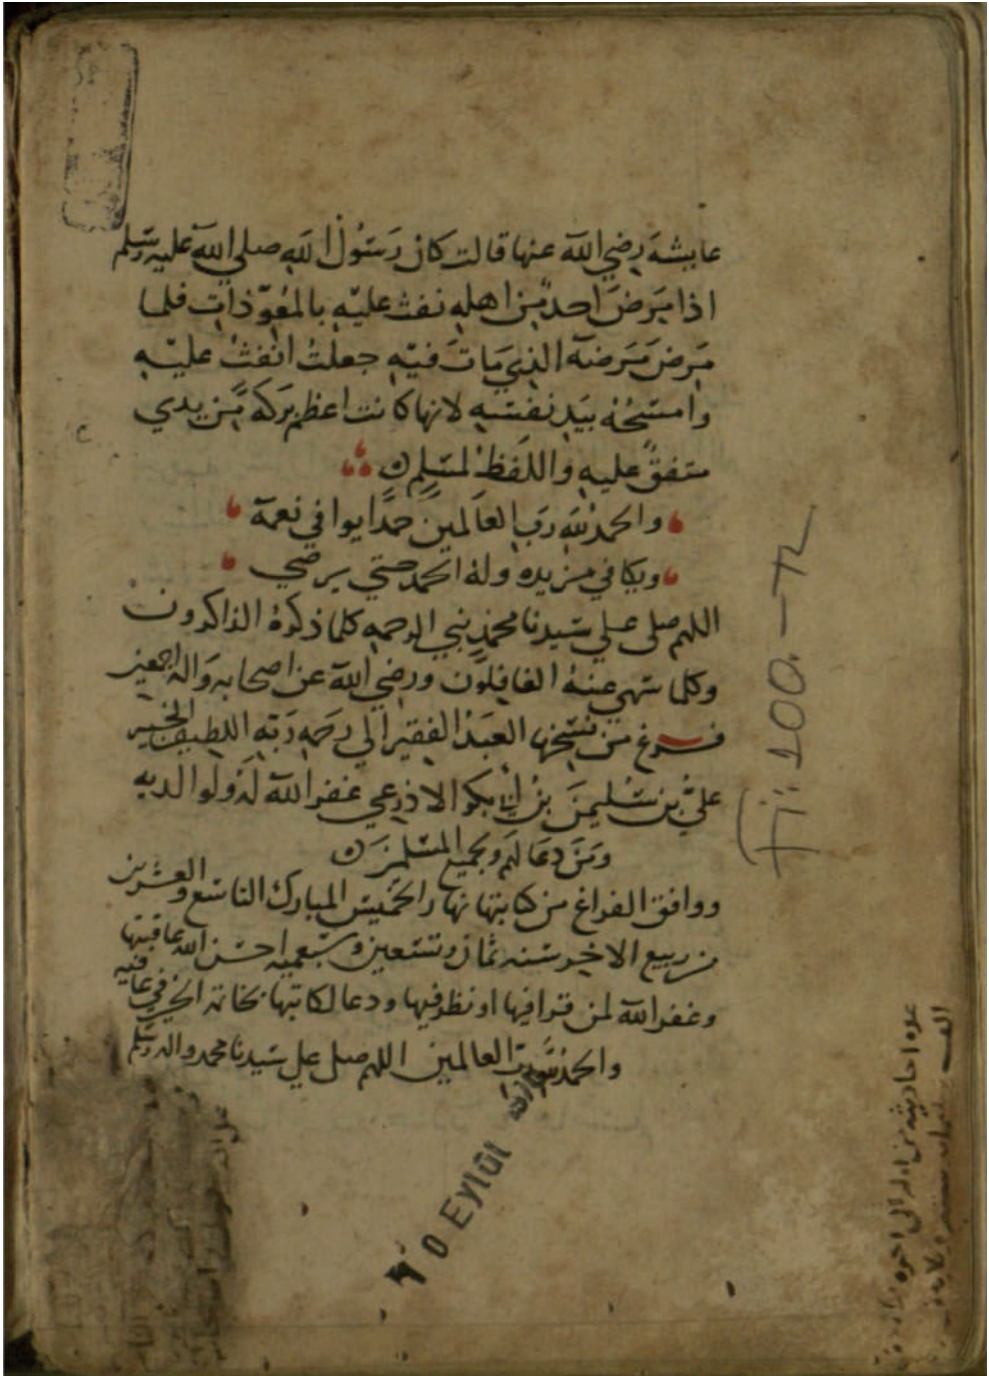 عايشة رضي الله عنها قالت كان رسول الله صلي الله عليه وسلم
اذا مرض احد من اهله نفث عليه بالمعوذات فلما
مرض مرضه الذي مات فيه جعلت انفث عليه
وامسحه بيد نفسه لانها كانت اعظم بركة من يدي
متفق عليه واللفظ لمسلم
والحمد لله رب العالمين حمدا يوافي نعمه
ويكافي مزيده وله الحمد حتي يرضي
اللهم صلى علي سيدنا محمد نبي الرحمه كلما ذكره الذاكرون
وكلما سهي عنه الغافلون ورضي الله عن اصحابه واله اجمعين
فرغ من نسخها العبد الفقير الي رحمه ربه اللطيف الخبير
علي بن سليمن بن ابي بكر الاذرعي غفر الله له ولوالديه
ومن دعا لهم ولجميع المسلمين
ووافق الفراغ من كتابتها نهار الخميس المبارك التاسع والعشرين
من ربيع الاخر سنه ثمان وتسعين وسبعميه احسن الله عاقبتها
وغفر الله لمن قرا فيها او نظر فيها ودعا لكاتبها بخاتمة الخير في عافيه
والحمد لله رب العالمين اللهم صل علي سيدنا محمد واله وسلم
Fi: 100.-TL
10 Eylûl
عده احاديثه من اوله الى اخره
الف